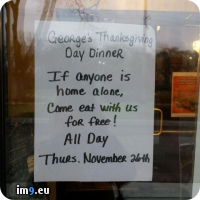 George's Thanksgiving
Day Dinner
If anyone is
home alone,
come eat with us
for free!
All Day
Thurs. November 26th
im9.eu